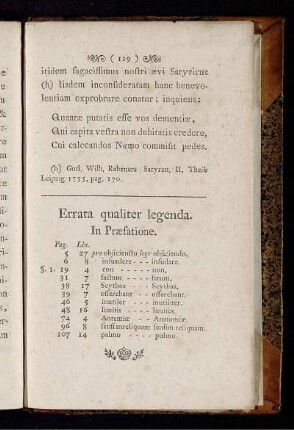 ( 119 )
itidem sagacissimus nostri ævi Satyricus
(h) Iisdem inconsideratam hanc benevo-
lentiam exprobrare conatur; inquiens:
Quantæ putatis esse vos dementiæ,
Qui capita vestra non dubitatis credere,
Cui calceandos Nemo commisit pedes.
(h) Gotl. Wilh. Rabeners Satyren, II. Theils
Leipzig 1755. pag. 170.
Errata qualiter legenda.
In Præfatione.
Pag. Lin.
5 27 pro objiciensto lege objiciendo,
6 8 - insuadere - - - insudare.
§. 1. 19 4 con - - - - - non,
31 7 factum - - - fatum.
38 17 Scythos - - - Scythas,
39 7 asserebant - - - asserebant.
46 5 inutiler - - - inutiliter.
48 16 limitis - - - - limites.
74 4 Antomiæ - - Anatomiæ.
96 8 sensim reliquam sensim reliquam.
107 14 palmo - - - - palmo.